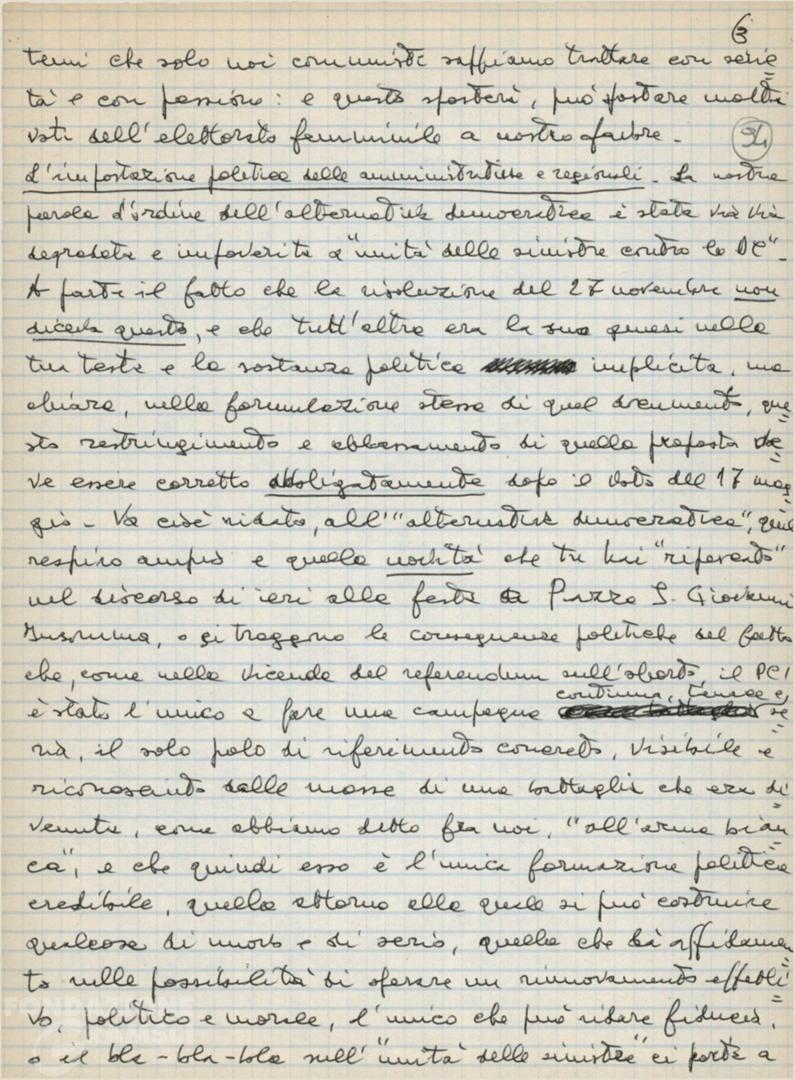 3
temi che solo noi comunisti sappiamo trattare con serie=
tà e con passione: e questo sposterà, può spostare molti
voti dell'elettorato femminile a nostro favore.
L'impostazione politica delle amministrative e regionali. La nostra
parola d'ordine dell'alternativa democratica è stata via via
degradata e impoverita a "unità delle sinistre contro la DC".
A parte il fatto che la risoluzione del 27 novembre non
diceva questo, e che tutt'altra era la sua genesi nella
tua testa e la sostanza politica implicita, ma
chiara, nella formulazione stessa di quel documento, que=
sto restringimento e abbassamento di quella proposta de=
ve essere corretto obbligatamente dopo il voto del 17 mag=
gio. Va cioè ridato, all'"alternativa democratica", quel
respiro ampio e quella novità che tu hai "riferento"
nel discorso di ieri alla festa a Piazza S. Giovanni
Insomma, o si traggono le conseguenze politiche del fatto
che, come nella vicenda del referendum sull'aborto, il PCI
continua, tenace e,
è stato l'unico a fare una campagna se=
ria, il solo polo di riferimento concreto, visibile e
riconosciuto dalle masse di una battaglia che era di=
venuta, come abbiamo detto fra noi, "all'arma bian=
ca", e che quindi esso è l'unica formazione politica
credibile, quella attorno alla quale si può costruire
qualcosa di nuovo e di serio, quella che dà affidamen=
to nelle possibilità di operare un rinnovamento effetti=
vo, politico e morale, l'unico che può ridare fiducia,
o il bla-bla-bla sull'"unità delle sinistre" ci porta a